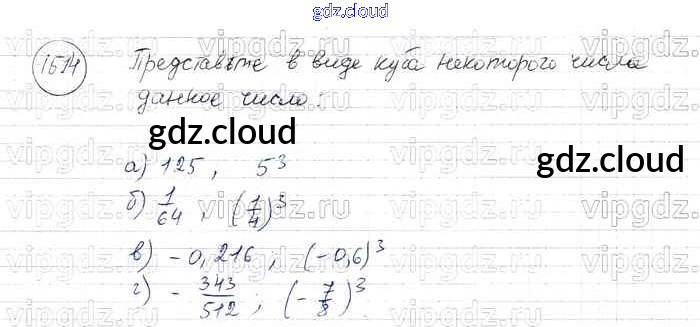 gdz.cloud
1514 Представьте в виде куба некоторого числа
данное число:
gdz.cloud
gdz.cloud
а) 125, 5³
б) 1/64, (1/4)³
в) -0,216; (-0,6)³
г) - 343/512; (-7/8)³